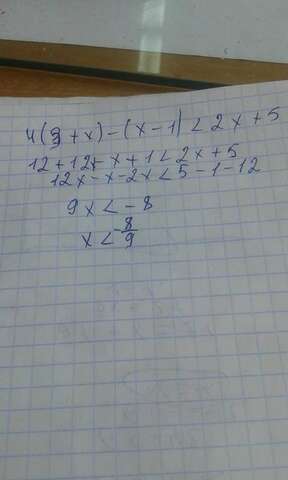 4(3+x)-(x-1)<2x+5
12+12x-x+1<2x+5
12x-x-2x<5-1-12
9x<-8
x<-8/9